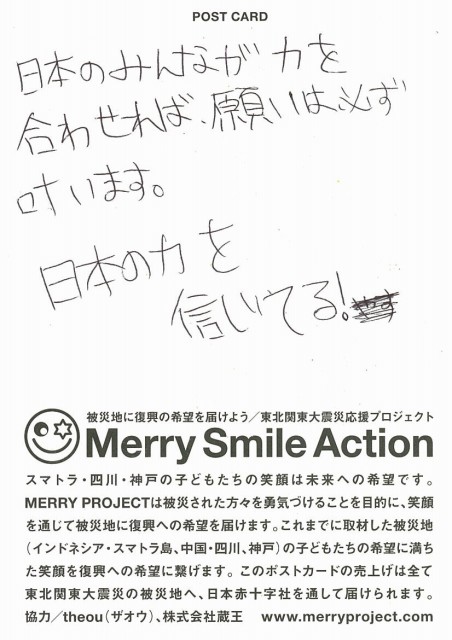 POST CARD
日本のみんなが力を
合わせれば、願いは必ず
叶います。
日本の力を
信じてる!
被災地に復興の希望を届けよう／東北関東大震災応援プロジェクト
Merry Smile Action
スマトラ・四川・神戸の子どもたちの笑顔は未来への希望です。
MERRY PROJECTは被災された方々を勇気づけることを目的に、笑顔
を通じて被災地に復興への希望を届けます。これまでに取材した被災地
（インドネシア・スマトラ島、中国・四川、神戸）の子どもたちの希望に満ち
た笑顔を復興への希望に繋げます。このポストカードの売上げは全て
東北関東大震災の被災地へ、日本赤十字社を通して届けられます。
協力／theou（ザオウ）、株式会社蔵王　www.merryproject.com